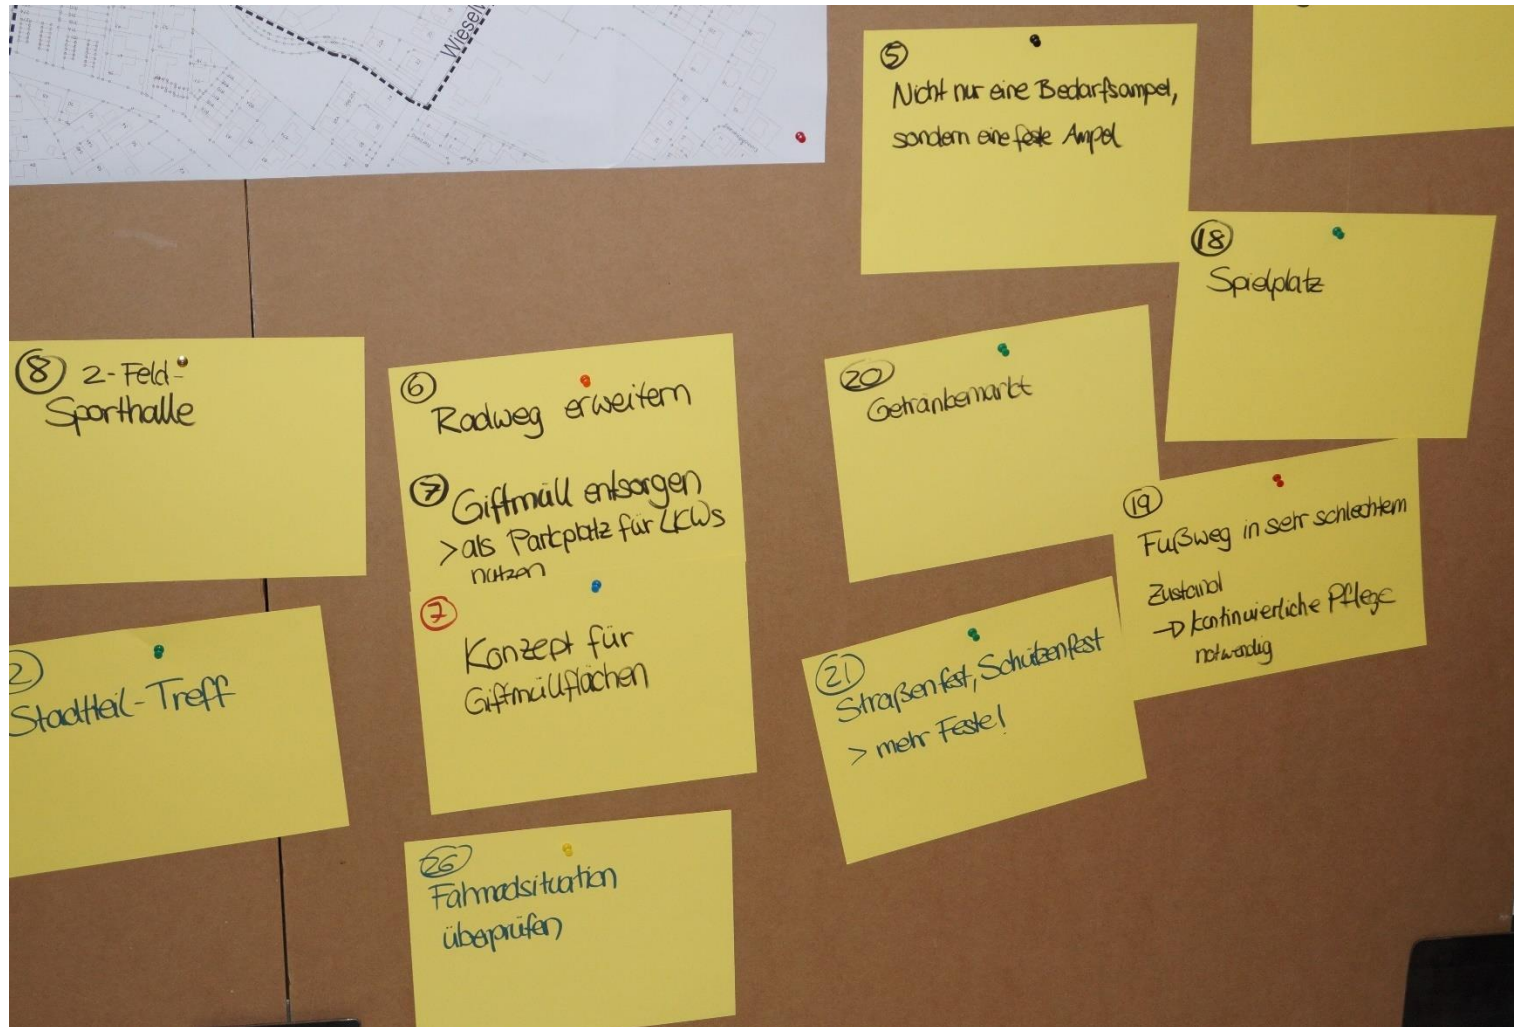 Wiesen
5
Nicht nur eine Bedarfsampel,
sondern eine feste Ampel
18
Spielplatz
8 2-Feld-
Sporthalle
6
Radweg erweitern
7 Giftmüll entsorgen
> als Parkplatz für LKWs
nutzen
7
Konzept für
Giftmüllflächen
20
Getränkemarkt
19
Fußweg in sehr schlechtem
Zustand
→ kontinuierliche Pflege
notwendig
2
Stadtteil-Treff
21
Straßenfest, Schützenfest
> mehr Feste!
26
Fahrradsituation
überprüfen